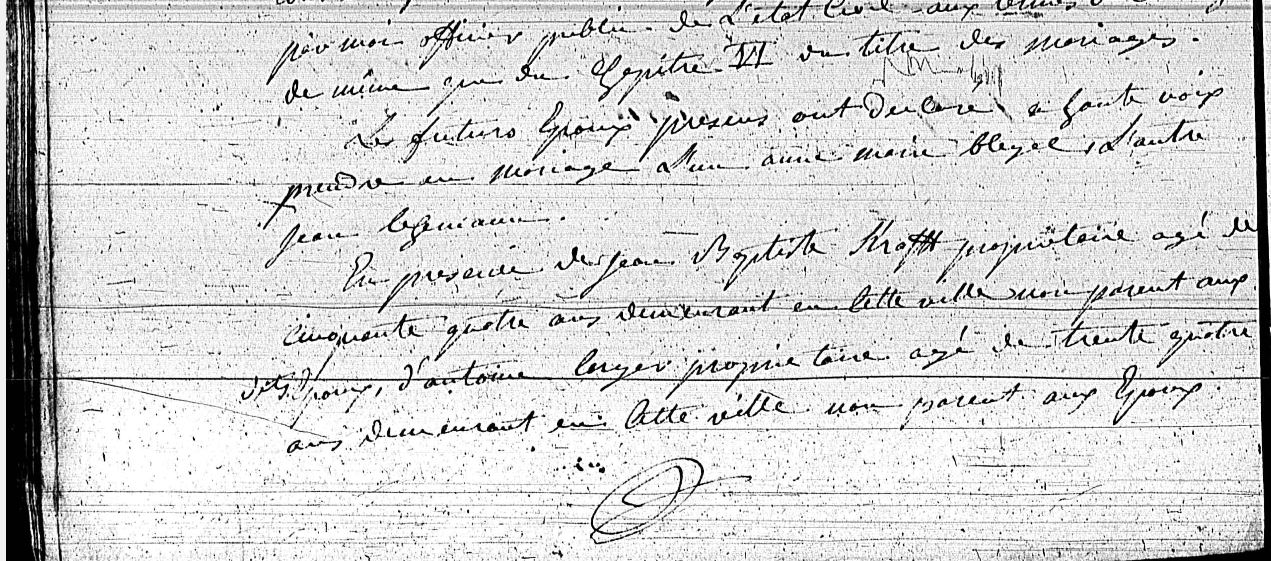 par moi officier public de L'état Civil aux termes
de même que du Chapitre VI du titre des mariages.
Les futurs Epoux presens ont declaré a haute voix
prendre en mariage L'un anne marie bleyel, L'autre
jean
En presence de jean Baptiste Krafft propriétaire agé de
cinquante quatre ans demeurant en Cette ville non parent aux
dits Epoux, d'antoine larger proprietaire agé de trente quatre
ans demeurant en Cette ville non parent aux Epoux.